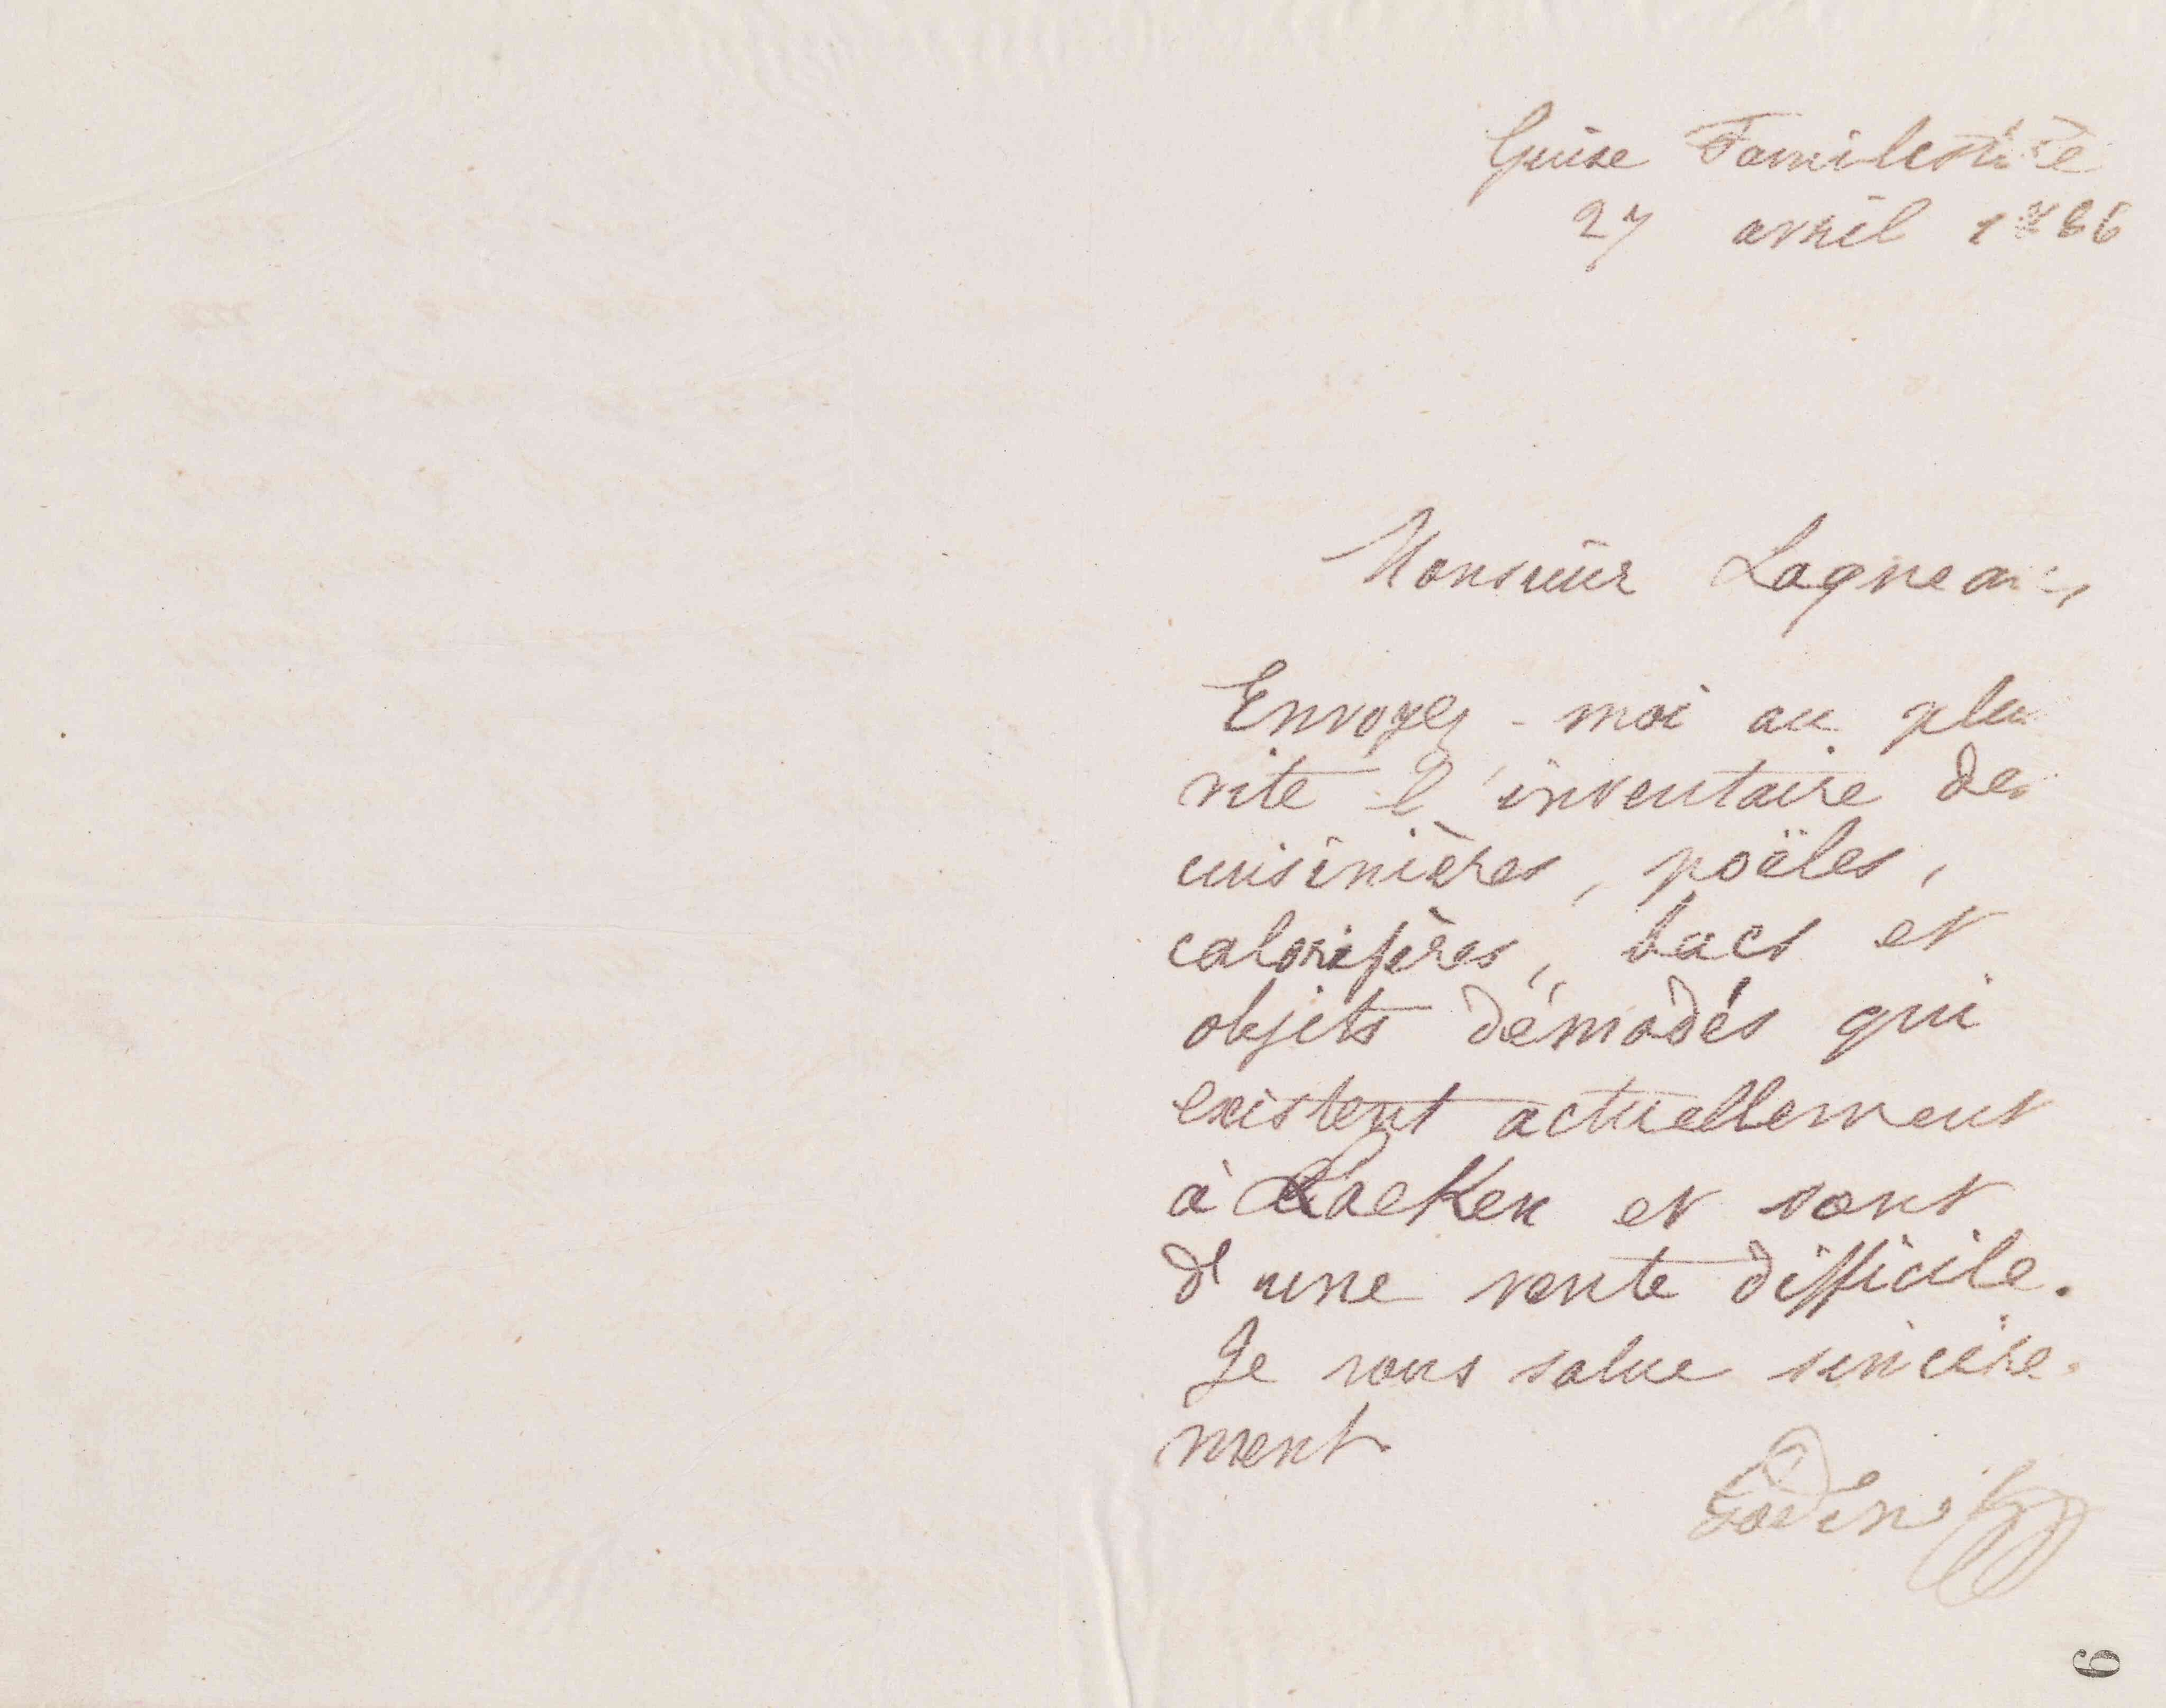 Guise Familistère
27 avril 1886
Monsieur Lagneau,
Envoyez-moi au plus
vite l'inventaire des
cuisinières, poëles,
calorifères, bacs et
objets démodés qui
existent actuellement
à Laeken et sont
d'une vente difficile.
Je vous salue sincère-
ment
Godin
6